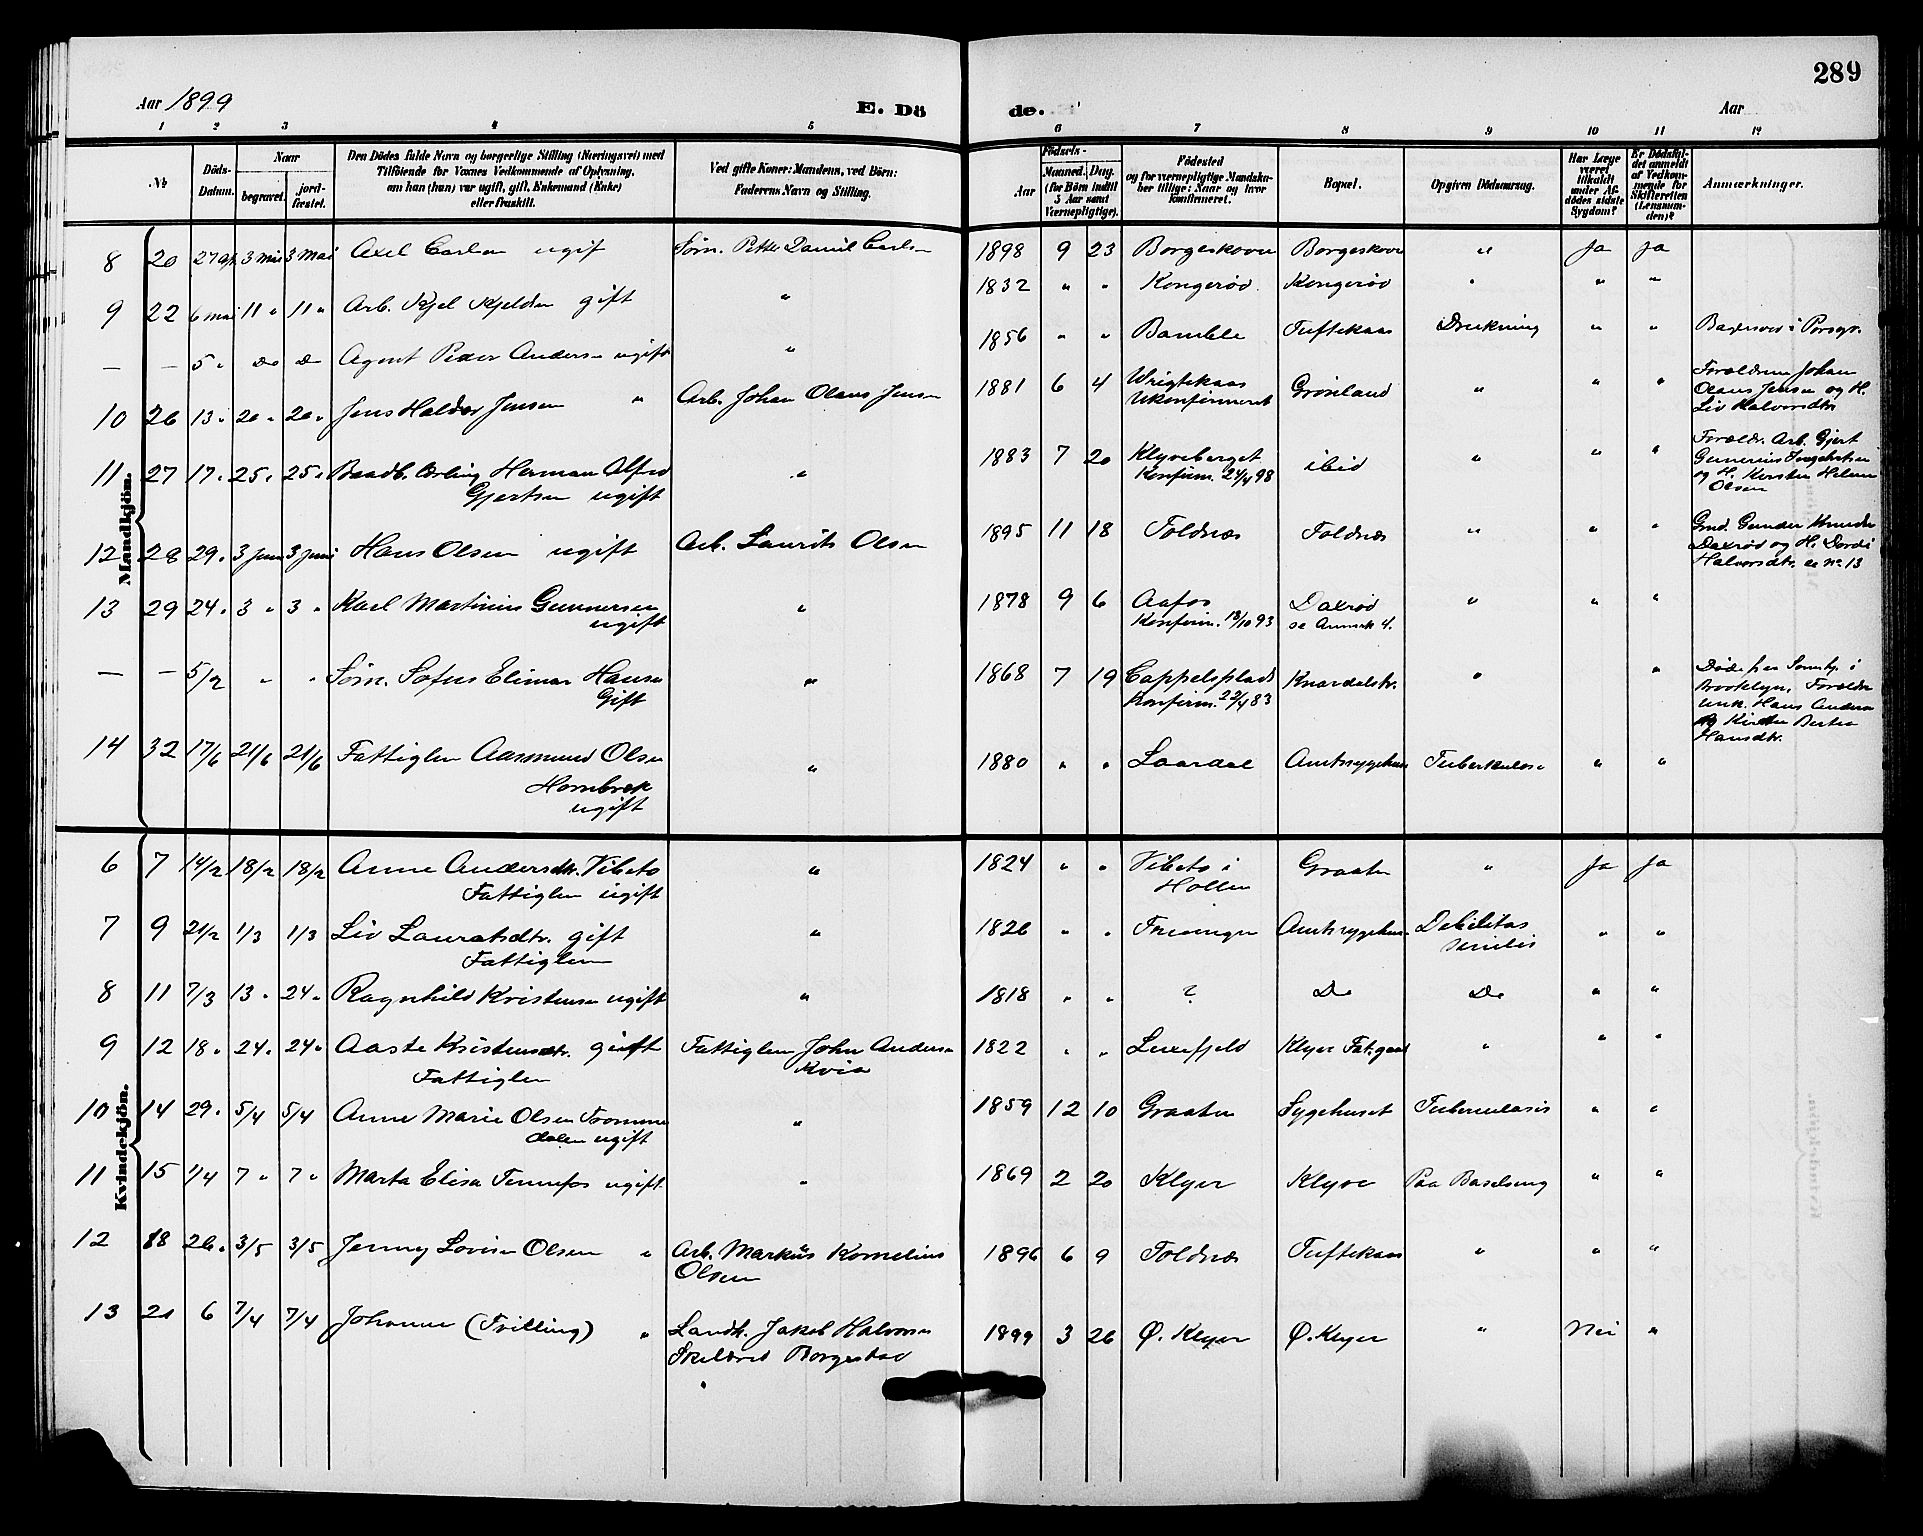 289
Aar 1899
E. Dö
de.
Aar
1 2 3 4 5 6 7 8 9 10 11 12
№
Döds-
Datum.
Naar
begravet.
jord-
fæstet.
Den Dödes fulde Navn og borgerlige Stilling (Næringsvei) med
Tilföiende for Voxnes Vedkommende af Oplysning,
om han (hun) var ugift, gift, Enkemand (Enke)
eller fraskilt.
Ved gifte Koner: Mandens, ved Börn:
Faderens Navn og Stilling.
Födsels-
Aar
Maaned. Dag.
(for Börn indtil
5 Aar samt
Værnepligtige).
Födested
og for værnepligtige Mandska-
ber tillige: Naar og hvor
konfirmeret.
Bopæl.
Opgiven Dödsaarsag.
Har Læge
været
tilkaldt
under Af-
dödes sidste
Sygdom?
Er Dödsfal-
det anmeldt
af Vedkom-
mende for
Skifteretten
(Lensman-
den)?
Anmærkninger.
Mandkjön.
8 20 27 Ap. 3 Mai 3 Mai Axel Carlsen ugift Søm. Petter Daniel Carlsen 1898 9 23 Borgeskoven Borgeskoven " Ja Ja
9 22 6 Mai 11 " 11 " Arb. Kjel Kjeldsen gift " 1832 " " Kongerød Kongerød " " "
— — 5 " Do Do Agent Peder Andersen ugift " 1856 " " Bamble Tuftekaas Drukning " " Begravet i Porsgr.
10 26 13 " 20 " 20 " Jens Haldor Jensen " Arb. Johan Olaus Jensen 1881 6 4 Wrigtekaas
Ukonfirmeret Grønland " " " Forældrene Johan
Olaus Jensen og H.
Liv Halvorsdtr.
11 27 17 " 25 " 25 " Baadb. Erling Herman Alfred
Gjertsen ugift " 1883 7 20 Klyveberget
Konfirm. 24/4 98 ibid " " " Forældr. Arb. Gjert
Gunerius Ingebretsen
og H. Kirsten Helene
Olsen
12 28 29 " 3 Juni 3 Juni Hans Olsen ugift Arb. Laurits Olsen 1895 11 18 Foldnæs Foldnæs " " "
13 29 24 " 3 " 3 " Karl Martinius Gunnersen
ugift " 1878 9 6 Aafos
Konfirm. 18/10 93 Daxrød
se Anmerk 4. " " " Grd. Gunder Knudsen
Daxrød og H. Dorthe
Halvorsdtr. ee № 13
— — 5/2 " " Søm. Sofus Elimar Hansen
Gift " 1868 7 19 Cappelsplads
Konfirm. 22/4 83 Knardalstr. " " Døde paa i
Brooklyn. Forældre
Hans Anders
og Kirsten Bertea
Hansdtr.
14 32 17/6 21/6 21/6 Fattiglem Aasmund Olsen
Hornbrek
ugift " 1880 " " Laardal Amtssygehus Tuberkulose " "
Kvindekjön.
6 7 14/2 18/2 18/2 Anne Andersdtr. Vibeto
Fattiglem ugift " 1824 " " Vibeto i
Hollen Graaten " Ja Ja
7 9 21/2 1/3 1/3 Liv Lauratsdtr. gift
Fattiglem " 1826 " " Amtssygehus Debilitas
senilis " "
8 11 7/3 13 " 24 " Ragnhild Kristensen ugift " 1818 " " ? Do Do " "
9 12 18 " 24 " 24 " Aaste Kristensdtr. gift
Fattiglem Fattiglem John Andersen
Kvia 1822 " " Luxefjeld Klyve Fat.gaard " " "
10 14 29 " 5/4 5/4 Anne Marie Olsen Tromme
dalen ugift " 1859 12 10 Graaten Sygehuset Tuberculosis " "
11 15 1/4 7 " 7 " Marta Elisa Tinnefos ugift " 1869 2 20 Klyve Klyve Paa Barselseng " "
12 18 26 " 3/5 3/5 Jenny Lovise Olsen " Arb. Markus Kornelius
Olsen 1896 6 9 Foldnæs Tuftekaas " " "
13 21 6 7/4 7/4 Johanne (Tvilling) " Landh. Jakob Halvorsen
Skilbred Borgestad 1899 3 26 Ø. Klyve Ø. Klyve " Nei "